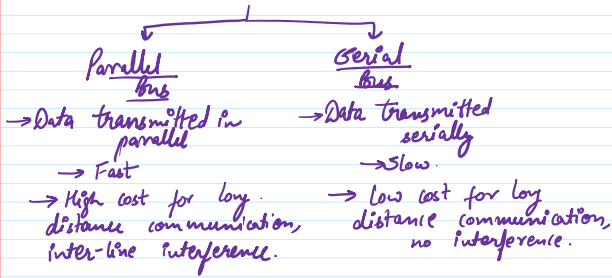 Parallel
Bus
→ Data transmitted in
parallel
→ Fast
→ High cost for long
distance communication,
inter-line interference.
Serial
Bus
→ Data transmitted
serially
→ Slow.
→ Low cost for long
distance communication,
no interference.